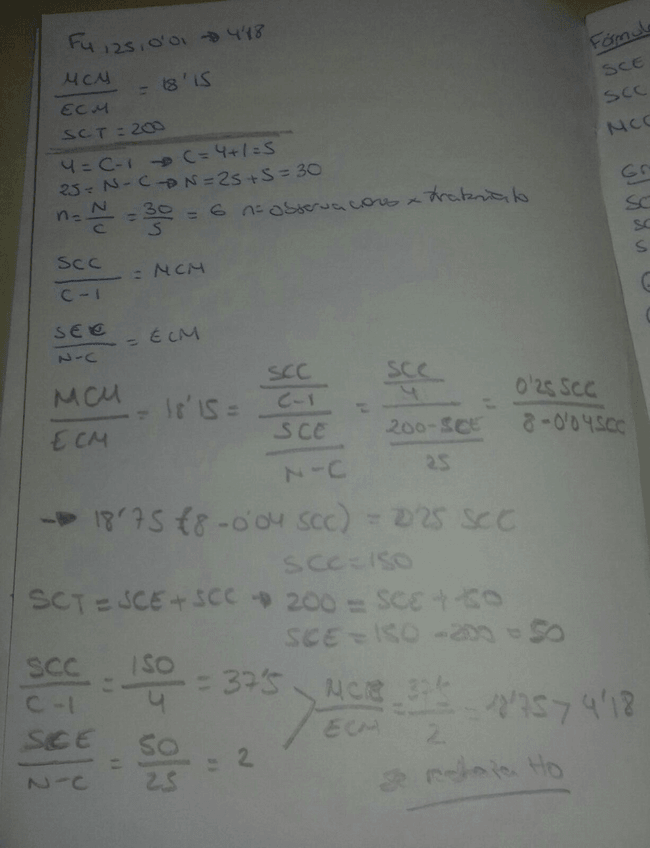 F4,25,0'01 → 4'18
MCM/ECM = 18'15
SCT = 200
4 = C-1 → C = 4+1 = 5
25 = N-C → N = 25+5 = 30
n = N/C = 30/5 = 6 n = observaciones x tratamiento
SCC/C-1 = MCM
SCE/N-C = ECM
MCM/ECM = 18'15 = (SCC/C-1)/(SCE/N-C) = (SCC/4)/(200-SCE/25) = 0'25 SCC/8-0'04SCC
→ 18'75 (8-0'04 SCC) = 0'25 SCC
SCC = 150
SCT = SCE + SCC → 200 = SCE + 150
SCE = 150 - 200 = 50
SCC/C-1 = 150/4 = 37'5
SCE/N-C = 50/25 = 2
MCM/ECM = 37'5/2 = 18'75 > 4'18
se rechaza H0
SCE
SCC